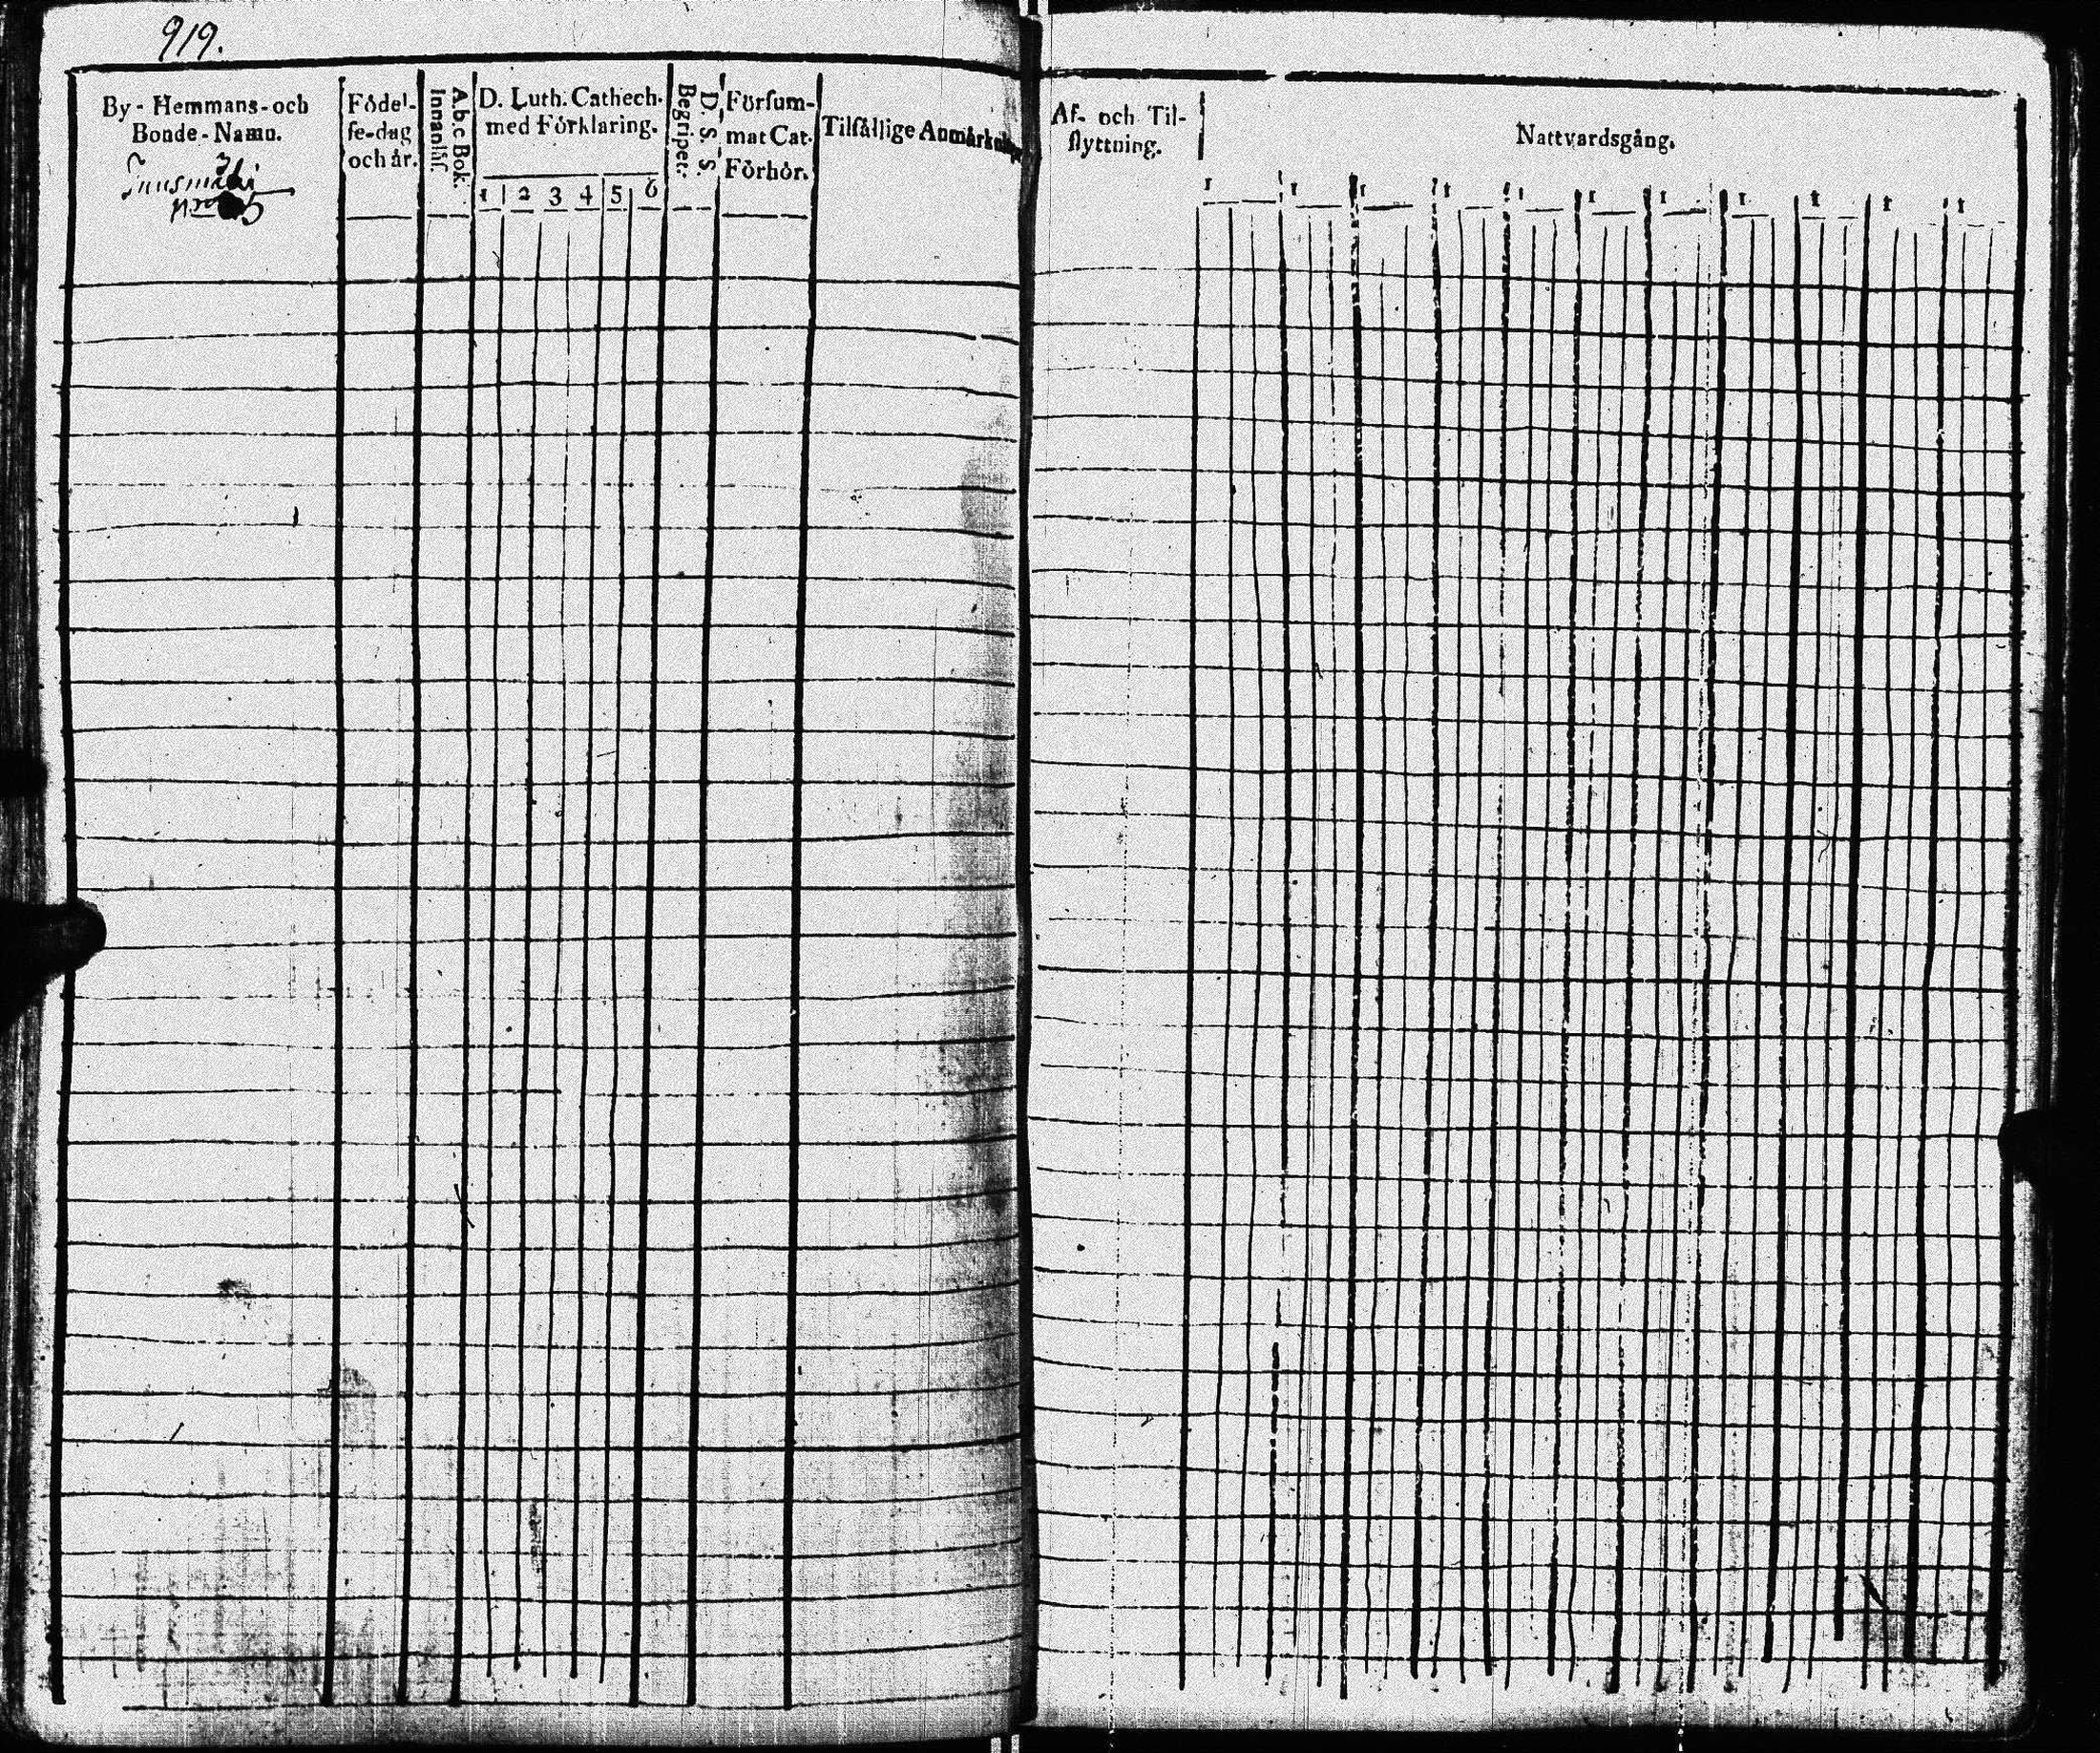 919.
By - Hemmans - och
Bonde - Namn.
Födel-
ſe-dag
och år.
A.b.c Bok.
Innanläſ.
D. Luth. Cathech.
med Förklaring.
1 2 3 4 5 6
D. S. S.
Begriper.
Förſum-
mat Cat.
Förhör.
Tilfällige Anmärkn
Af- och Til-
flyttning.
Nattvardsgång.
1 1 1 1 1 1 1 1 1 1 1